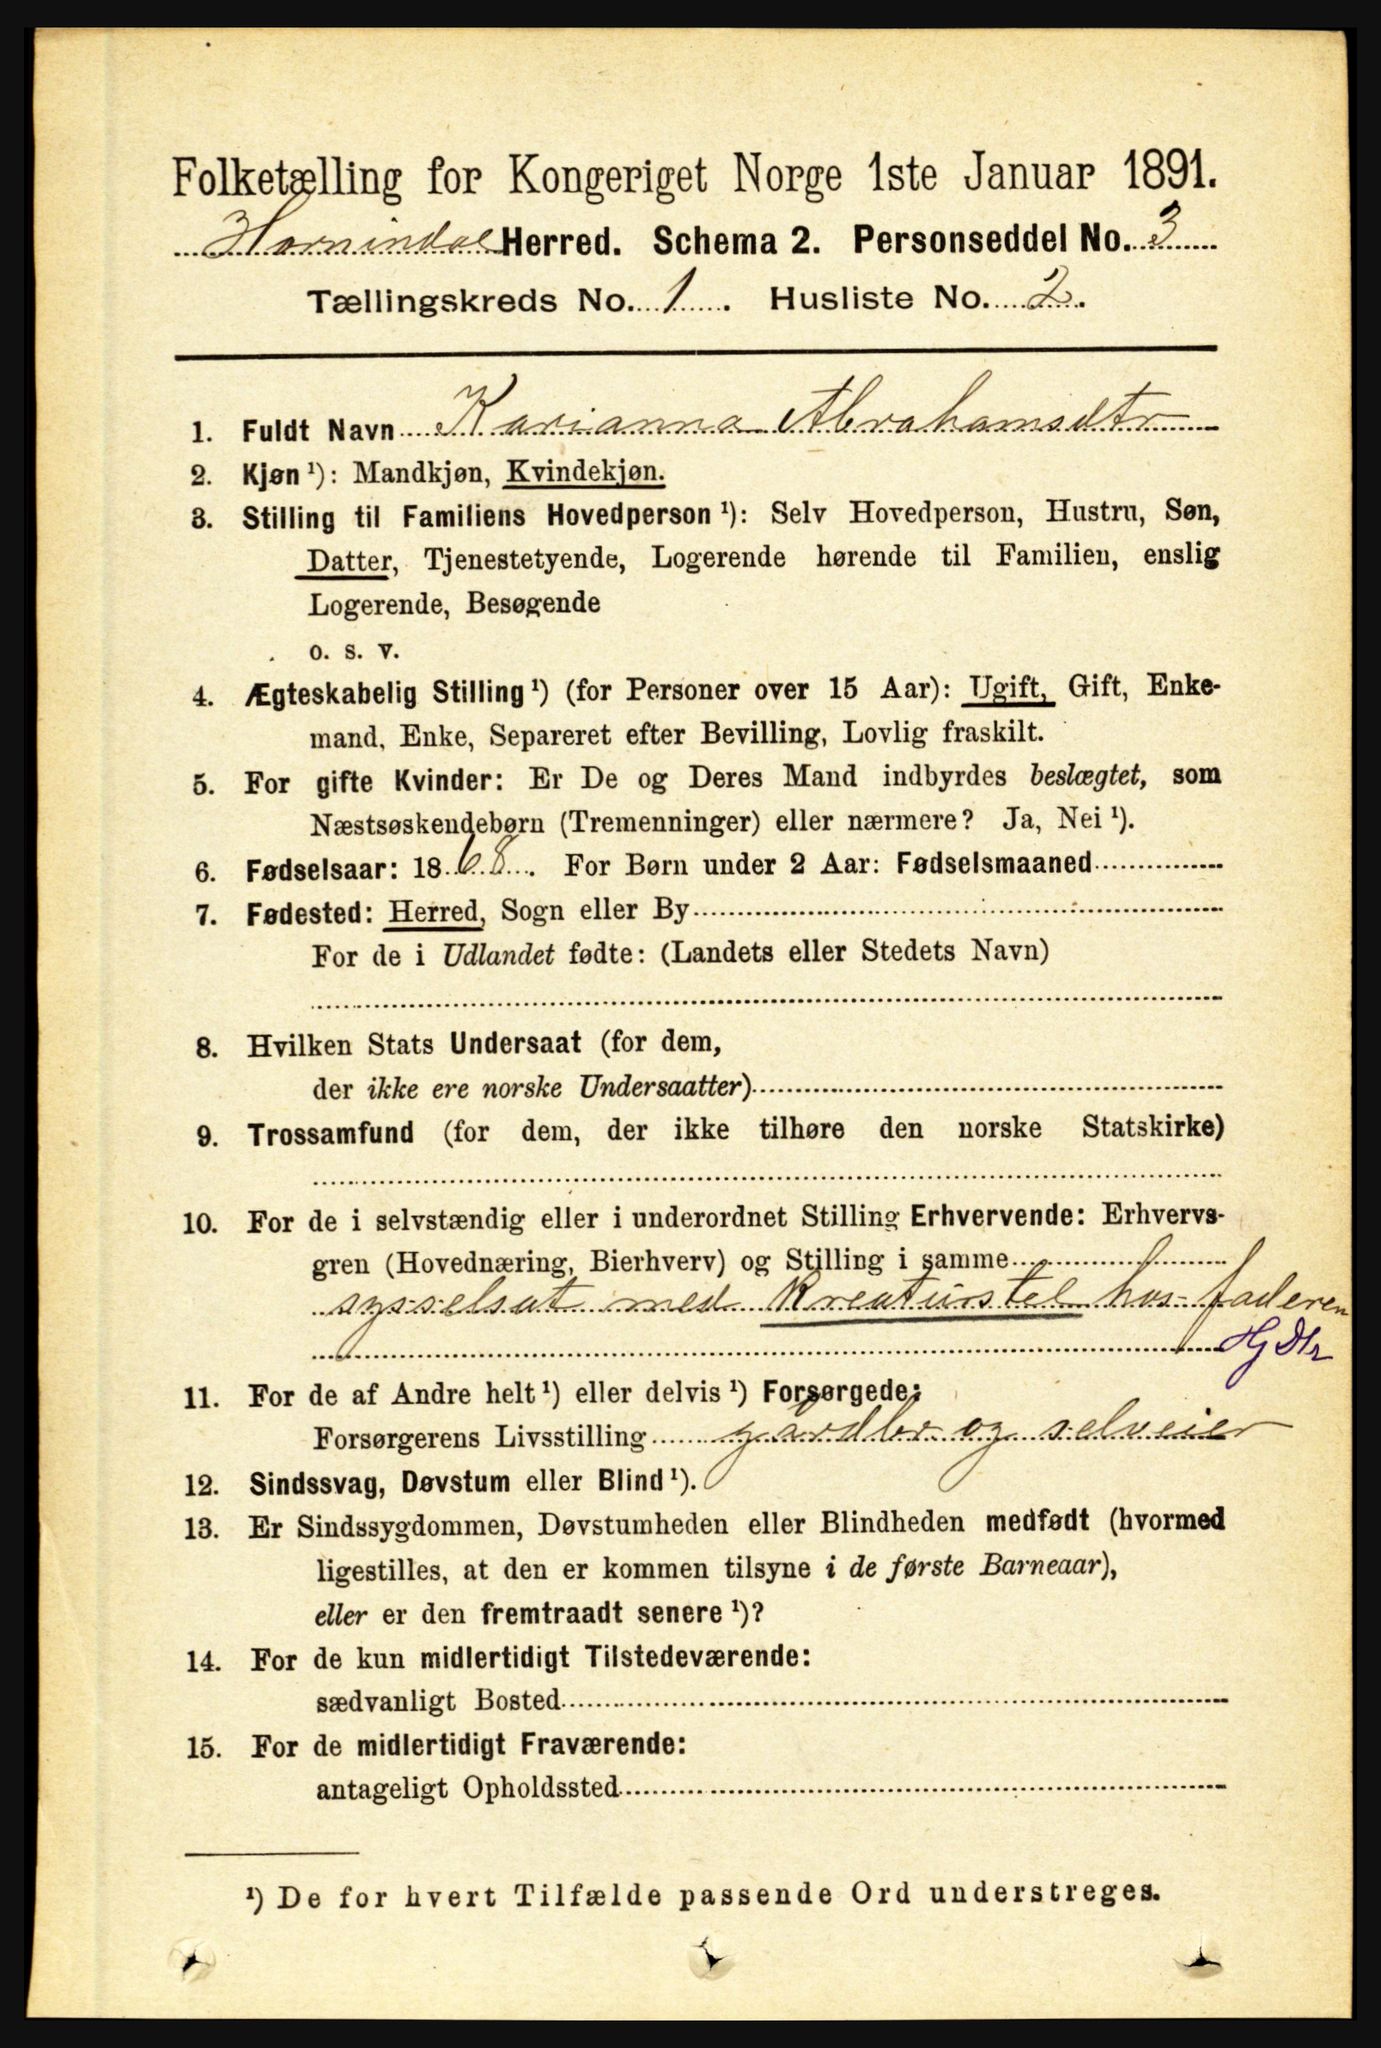 Folketælling for Kongeriget Norge 1ste Januar 1891.
Hornindal Herred. Schema 2. Personseddel No. 3
Tællingskreds No. 1. Husliste No. 2.
1. Fuldt Navn Karianna Abrahamsdtr
2. Kjøn ¹): Mandkjøn, Kvindekjøn.
3. Stilling til Familiens Hovedperson ¹): Selv Hovedperson, Hustru, Søn,
Datter, Tjenestetyende, Logerende hørende til Familien, enslig
Logerende, Besøgende
o. s. v.
4. Ægteskabelig Stilling ¹) (for Personer over 15 Aar): Ugift, Gift, Enke-
mand, Enke, Separeret efter Bevilling, Lovlig fraskilt.
5. For gifte Kvinder: Er De og Deres Mand indbyrdes beslægtet, som
Næstsøskendebørn (Tremenninger) eller nærmere? Ja, Nei ¹).
6. Fødselsaar: 1868. For Børn under 2 Aar: Fødselsmaaned
7. Fødested: Herred, Sogn eller By
For de i Udlandet fødte: (Landets eller Stedets Navn)
8. Hvilken Stats Undersaat (for dem,
der ikke ere norske Undersaatter)
9. Trossamfund (for dem, der ikke tilhøre den norske Statskirke)
10. For de i selvstændig eller i underordnet Stilling Erhvervende: Erhvervs-
gren (Hovednæring, Bierhverv) og Stilling i samme
sysselsat med Kreaturstel hos faderen
Hj Dtr
11. For de af Andre helt ¹) eller delvis ¹) Forsørgede:
Forsørgerens Livsstilling gardbr og selveier
12. Sindssvag, Døvstum eller Blind ¹).
13. Er Sindssygdommen, Døvstumheden eller Blindheden medfødt (hvormed
ligestilles, at den er kommen tilsyne i de første Barneaar),
eller er den fremtraadt senere ¹)?
14. For de kun midlertidigt Tilstedeværende:
sædvanligt Bosted
15. For de midlertidigt Fraværende:
antageligt Opholdssted
¹) De for hvert Tilfælde passende Ord understreges.